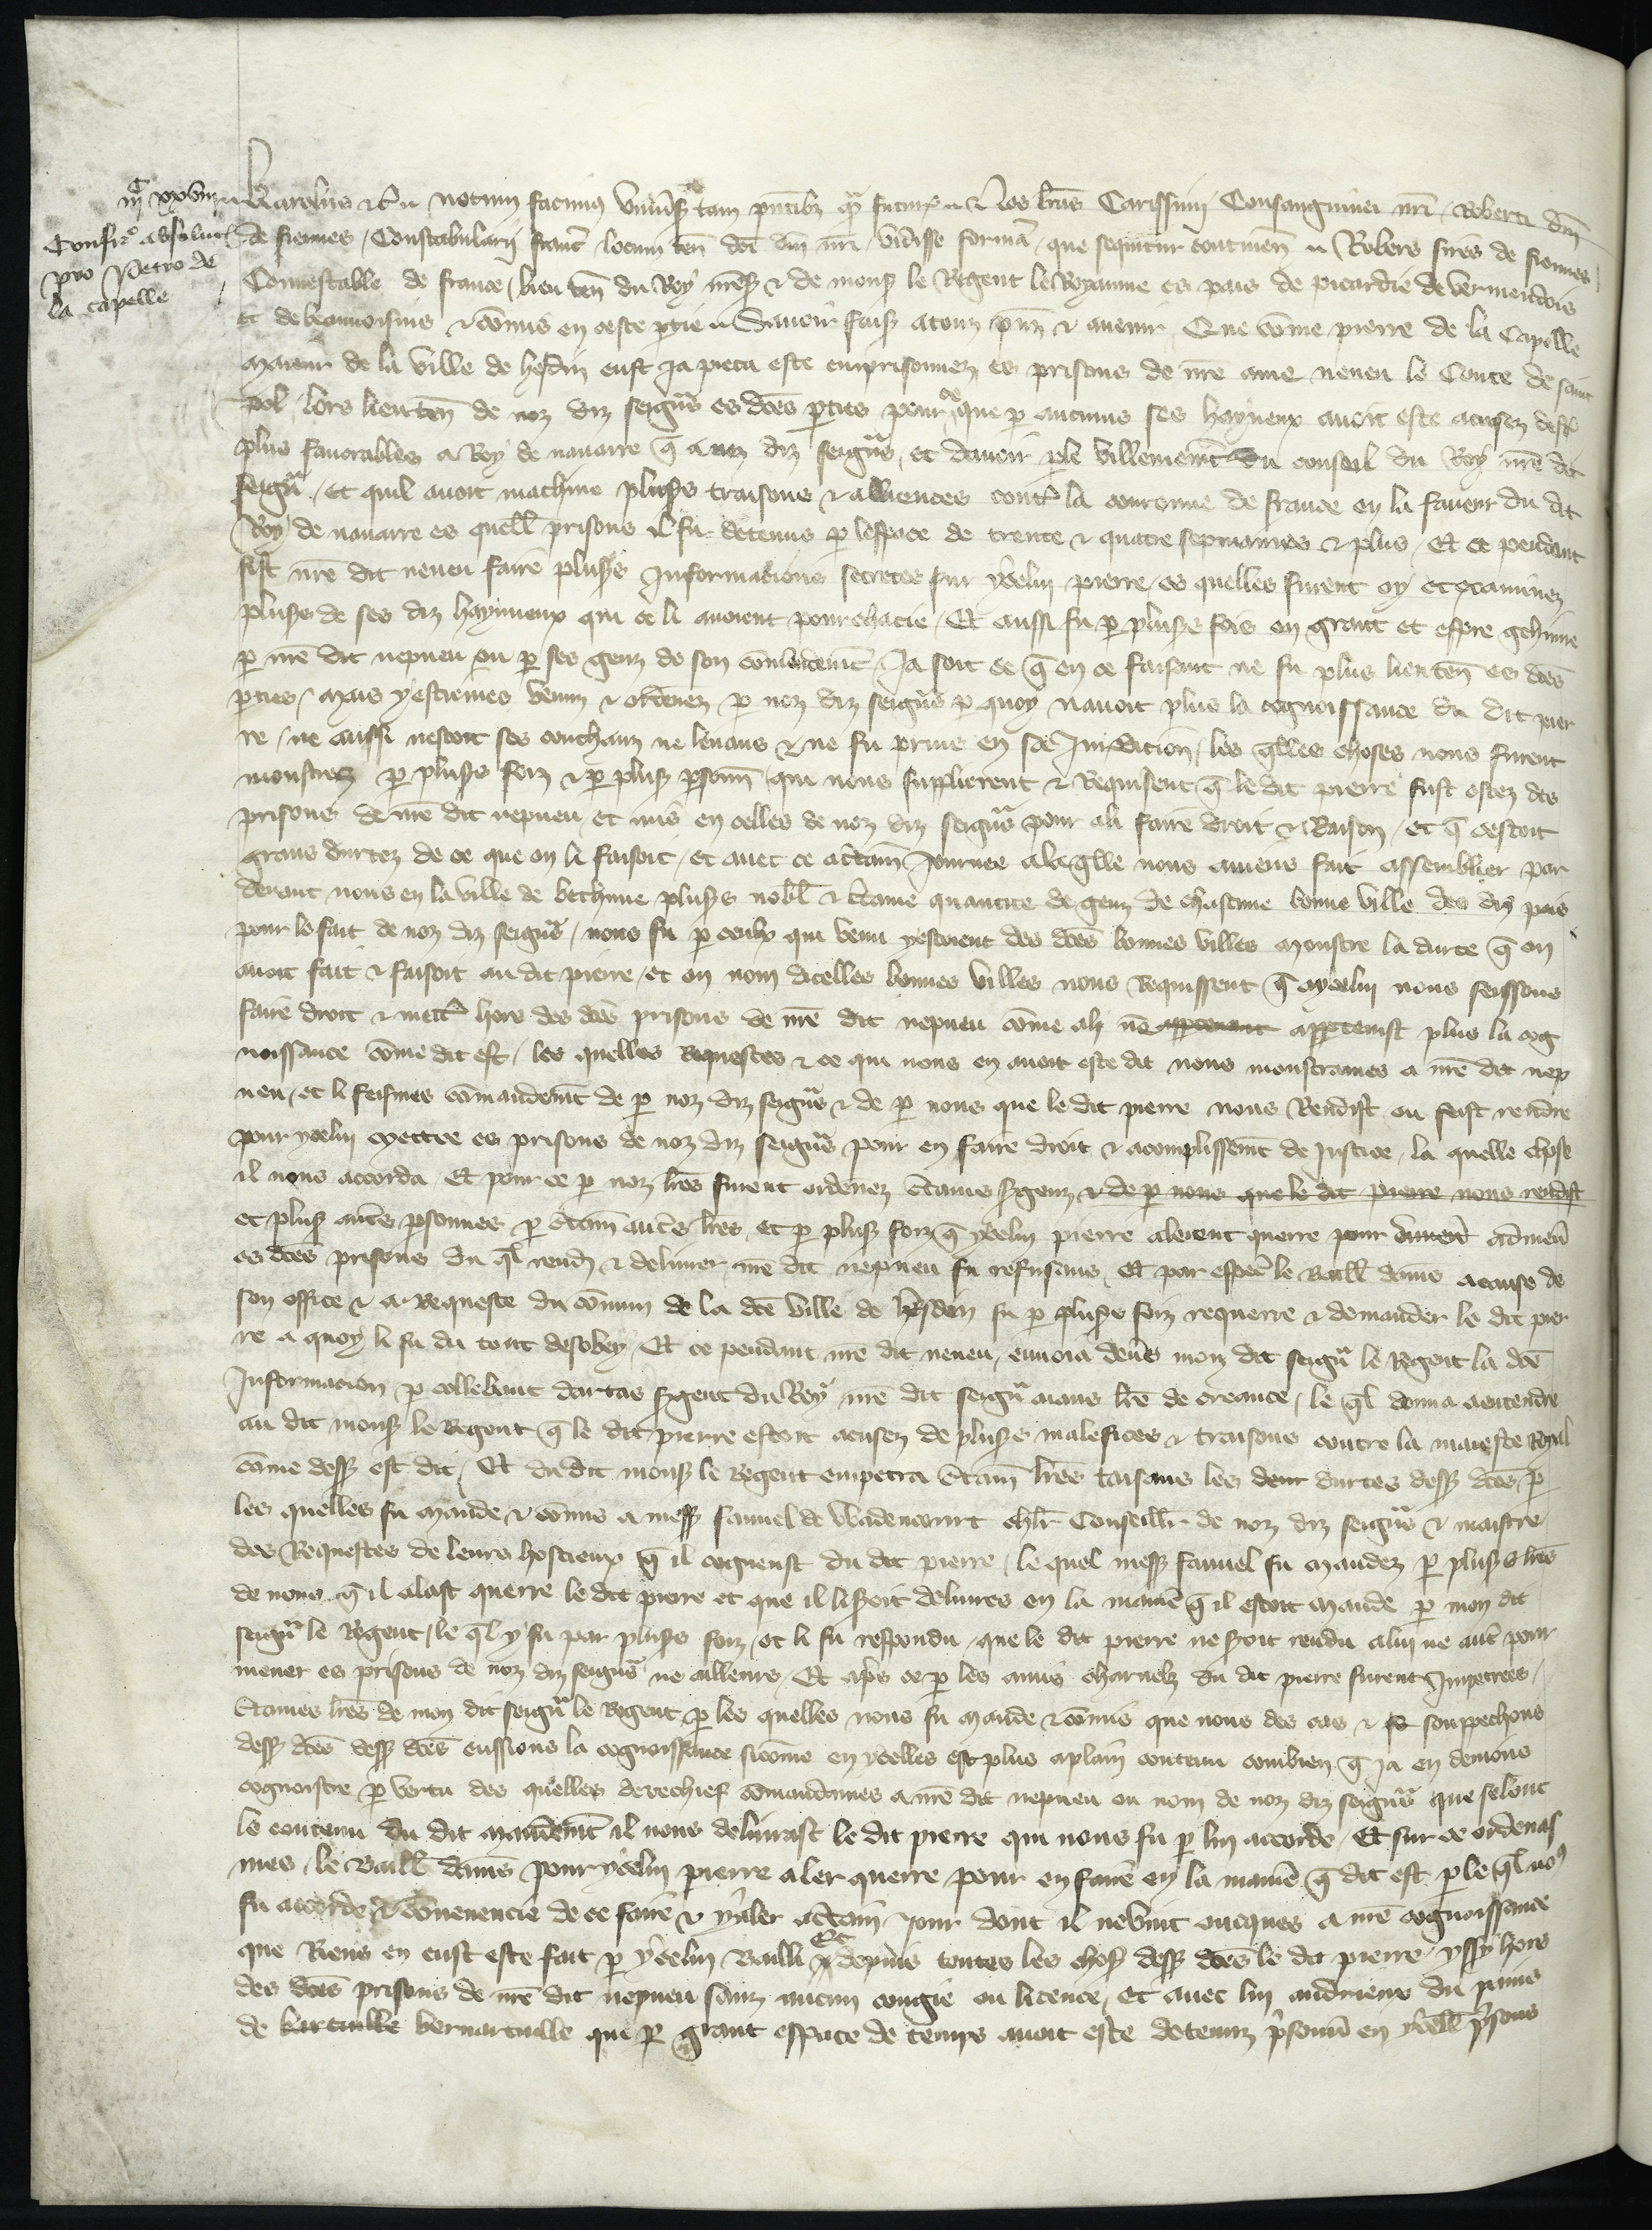 iiijc xxviij
Confirmo absolut
pro Petro de
la capelle
Karolus etc notum facimus universis tam pntibz qm futur nos lras Carissimi Consanguinei nri Roberti dni
de fiennes Constabularii franc locum ten dci dni nri vidisse forma que sequitur continen Robers sires de fiennes
Connestable de france lieuten du Roy nres et de mons le Regent le Royaume es pais de picardie de vermendois
et de beauvoisins et comis en ceste ptie Savoir fais a touz pns et avenir Que come pierre de la Capelle
maieur de la ville de hesdin eust ja pieca este emprisonnez es prisons de nre ame neveu le Conte de saint
pol lors lieuten de noz diz seigurs es dces pties pour ce que p aucuns ses hayneux avoit este acusez destre
plus favorables a Roy de navarre q a noz diz seigurs et davoir ple villement du conseil du Roy nre dit
seigur et quil avoit machine plusrs traisons et alliences contre la couronne de france en la faveur du dit
Roy de navarre es quell prisons il fu detenus p lespace de trente et quatre sepmaines et plus Et ce pendant
fist nre dit neveu faire plusrs Informacions secretes sur ycelui pierre es quelles furent oy et examinez
plusrs de ses diz hayneux qui ce li avoient pourchacie Et aussi fu p plusrs fois en grant et aspre gehinne
p nre dit nepveu ou p ses genz de son comandemt Ja soit ce q en ce faisant ne fu plus lieuten es dces
pties mais y estiemes venuz et ordenez p noz diz seigurs p quoy navoit plus la cognoissance du dit pier
re ne aussi nestoit ses couchanz ne levans et ne fu prins en sa Juridicion les qlles choses nous furent
monstrees p plusrs foiz et p plus psonn qui nous supplierent et Requisrent q le dit pierre fust ostez des
prisons de nre dit nepveu et mis en celles de noz diz seigurs pour ali faire droit et Raison et q cestoit
grans durtez de ce que on li faisoit et avec ce a ctain Journee a la qlle nous aviens fait assembler par
devant nous en la ville de bethune plusrs nobl et ctaine quantite de genz de chascune bonne ville des diz pais
pour le fait de noz diz seigurs nous fu p ceulx qui venu y estoient des dces bonnes villes monstre la durte q on
avoit fait et faisoit au dit pierre et on nom dicelles bonnes villes nous requissent q a ycelui nous feissons
faire droit et mettre hors des dces prisons de nre dit nepveu come ali ne apptenant apptenist plus la cog
noissance come dit est les quelles Requestes et ce qui nous en avoit este dit nous monstrames a nre dit nep
veu et li feismes comandemt de p noz diz seigurs et de p nous que le dit pierre nous Rendist ou feist rendre
pour ycelui mettre es prisons de noz diz seigurs pour en faire droit et acomplissemt de Justice la quelle chose
il nous accorda Et pour ce p noz lres furent ordenez ctains sgenz et de p nous que le dit pierre nous rendist
et plus autres psonnes p ctain autres lres et p plus foiz q ycelui pierre alerent querre pour amener
es dces prisons du ql rendre et delivrer nre dit nepveu fu refusans Et par especl le Baill damiens a cause de
son office et a Requeste du comun de la dce ville de hesdin fu p plusrs foiz requerre et demander le dit pier
re a quoy li fu du tout desobey Et ce pendant nre dit neveu envoia devers mon dit seigur le Regent la dce
Informacion p collebaut dartas sgent du Roy nre dit seigur aians lre de creance le ql donna a entendre
au dit mons le Regent q le dit pierre estoit acusez de plusrs malefices et traisons contre la maieste Royal
come dess est dit Et du dit mons le Regent empetra ctain lres taisans les deux durtes dess dces p
les quelles fu mande et comis a mess fauvel de Wadencourt chlr Conseillr de noz diz seigurs et maistre
des Requestes de leurs hostieux q il cogneust du dit pierre le quel mess fauvel fu mandez p plusrs lres
de nous q il alast querre le dit pierre et que il li seroit delivres en la manie q il estoit mande p mon dit
seigur le Regent le ql y fu par plusrs foiz et li fu respondu que le dit pierre ne seroit rendu a lui ne autre pour
mener es prisons de noz diz seigurs ne ailleurs Et aps ce p les amis charnelz du dit pierre furent Impetrees
ctaines lres de mon dit seigur le Regent p les quelles nous fu mande et comis que nous des cas et souppechons
dess dces dess dces eussions la cognoissance sicome en ycelles est plus aplain contenu combien q ja en deviens
cognoistre p vertu des quelles derechief comandames a nre dit nepveu ou nom de noz diz seigurs que selonc
le contenu du dit mandemt il nous delivrast le dit pierre qui nous fu p lui accorde Et sur ce ordenas
mes le Baill damiens pour ycelui pierre aler querre pour en faire en la manie q dit est p le ql nos
fu accorde et convenencie de ce faire et y aler a ctain Jour dont il ne vint oncques a nre cognoissance
que Riens en eust este fait p ycelui Bailli Et depuis toutes les chos dess dces le dit pierre yssy hors
des dces prisons de nre dit nepveu sanz aucun congie ou licence et avec lui andrieux du puins
de bernartville qui p grant espace de temps avoit este detenuz prisonn en ycell prisons